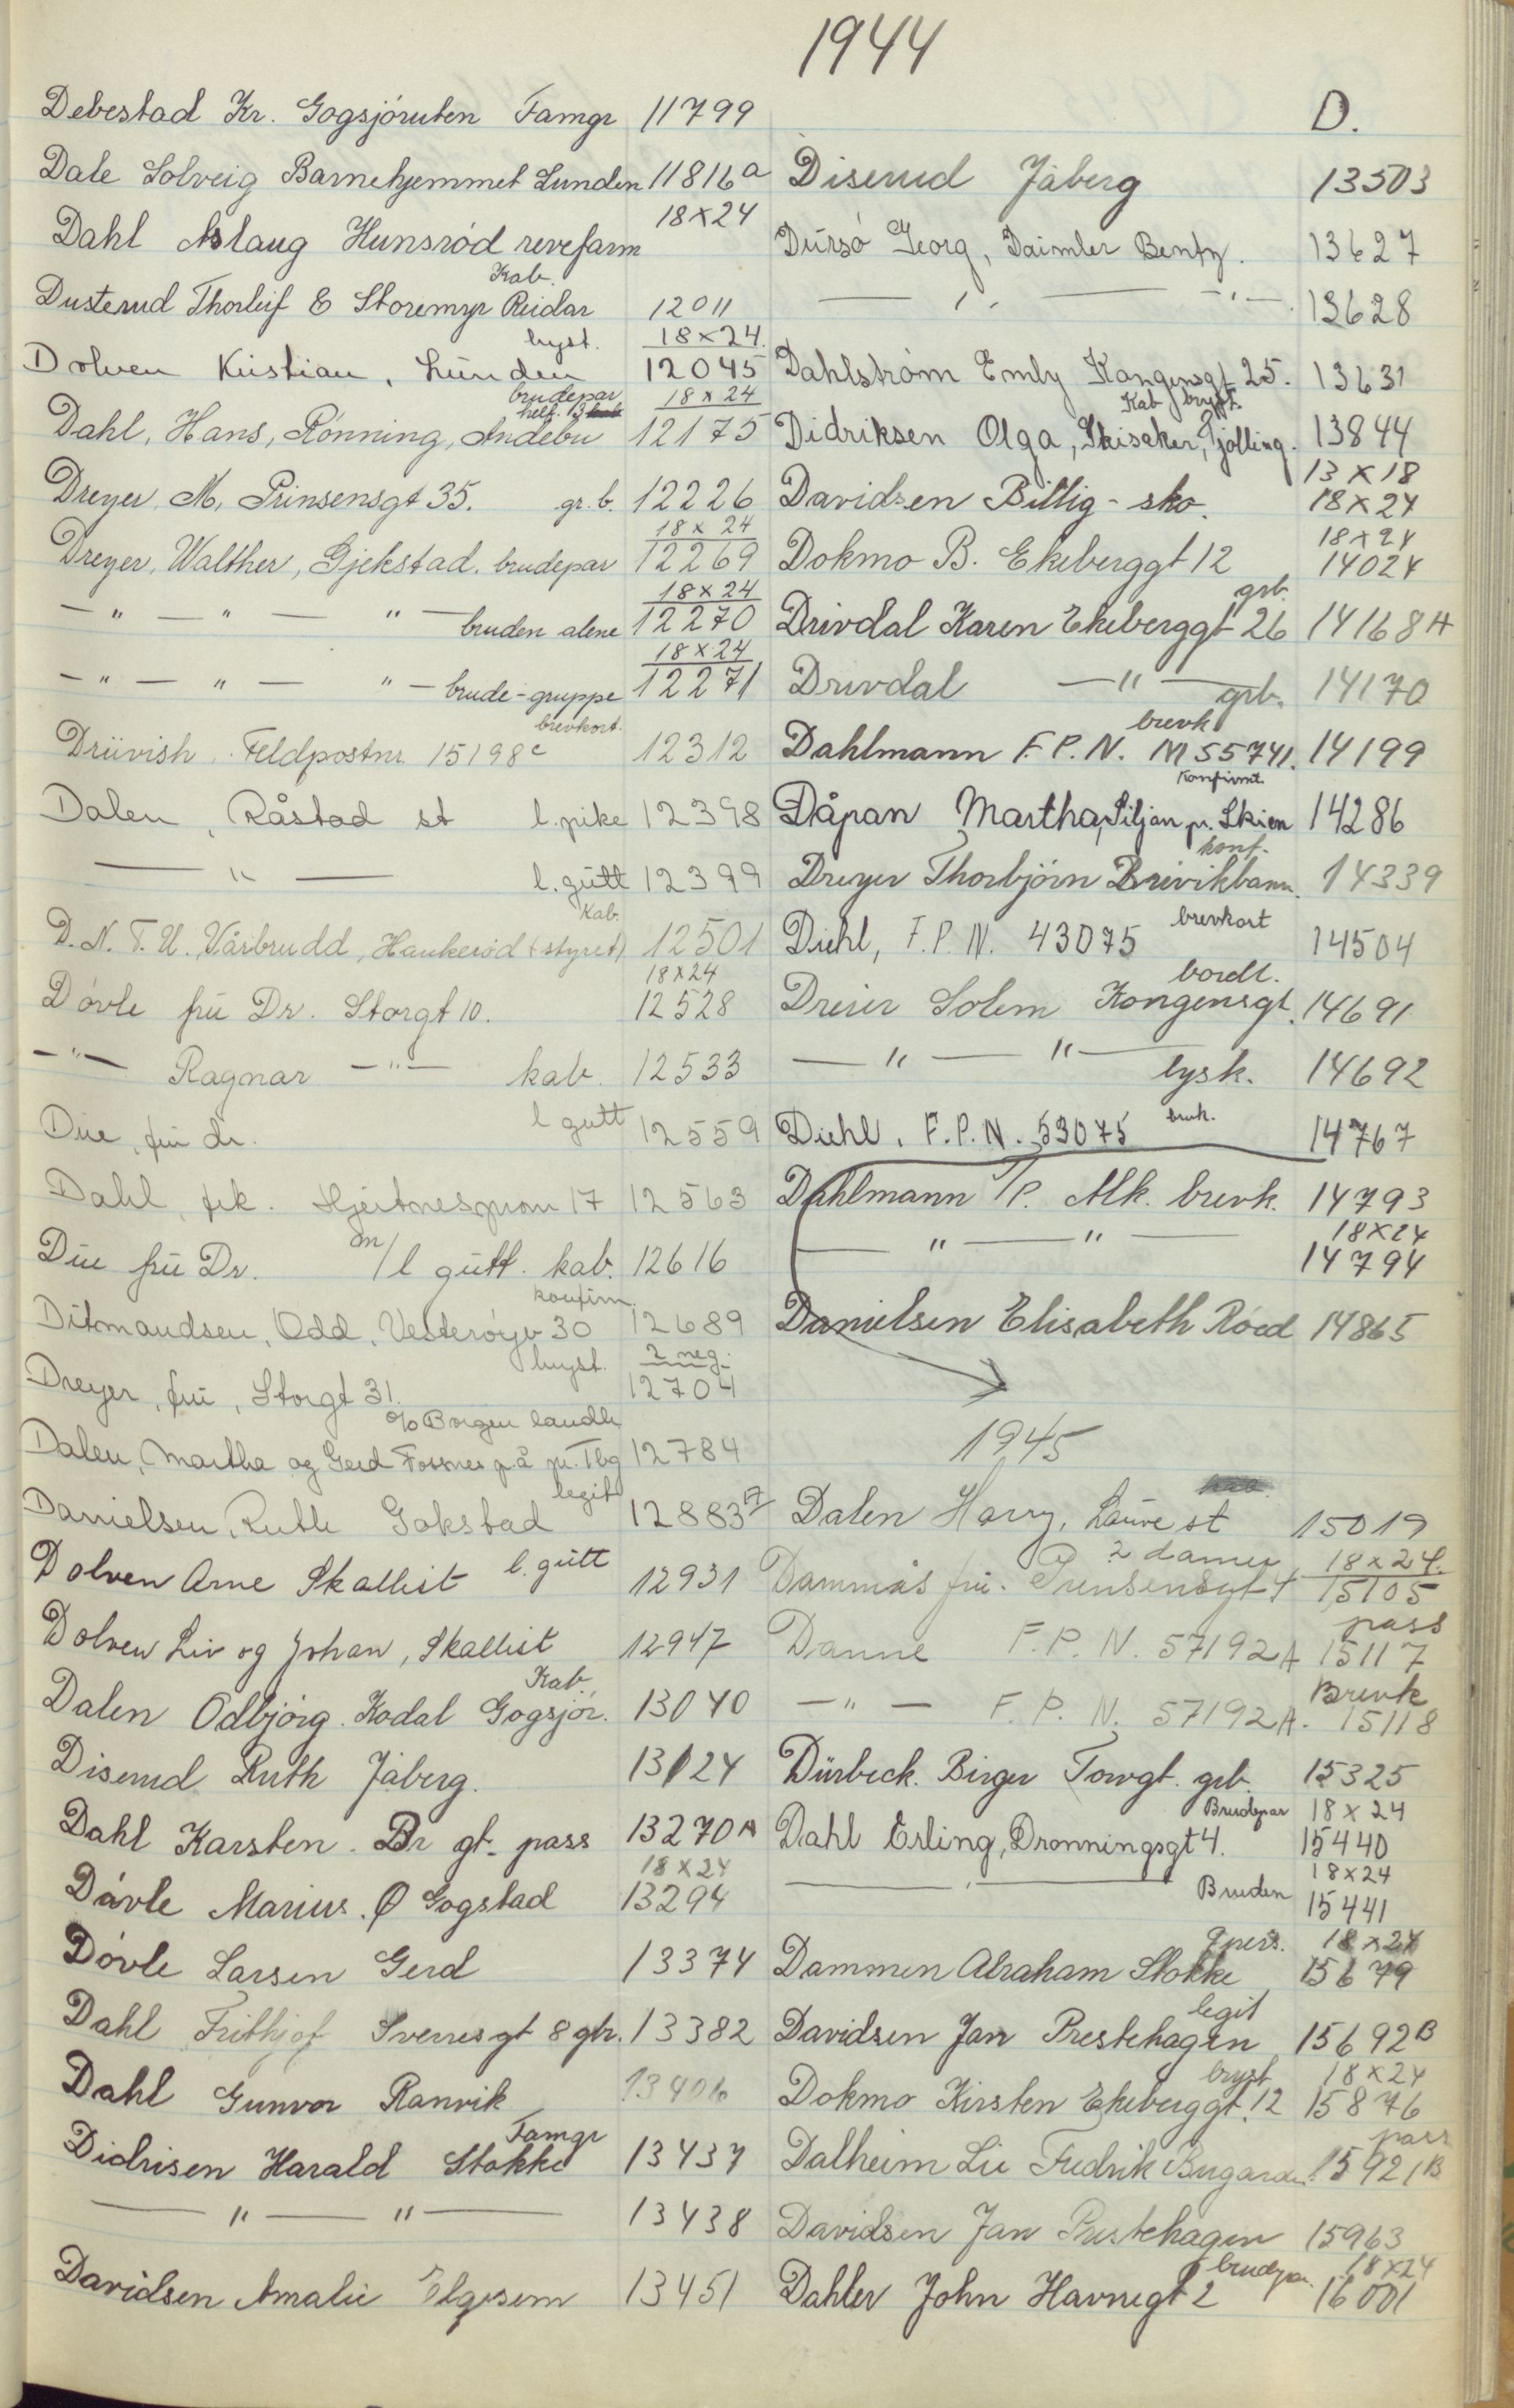 1944
D.
Debestad Kr. Gogsjøruten Famgr 11799
Dale Solveig Barnehjemmet Lunden 11816a
Dahl Aslaug Hunsrød revefarm 18x24
Kab.
Dusterud Thorleif & Storemyr Reidar 12011
byst. 18x24.
Dolven Kristian, Lunden 12045
brudepar 18x24
helf.
Dahl, Hans, Rønning, Andebu 12175
Dreyer, M, Prinsensgt 35. gr. b. 12226
18x24
Dreyer, Walther, Gjekstad. brudepar 12269
18x24
— " — " — " — bruden alene 12270
18x24
— " — " — " — brude-gruppe 12271
brevkort.
Drüvish. Feldpostnr. 15198c 12312
Dalen, Råstad st l. pike 12398
— " — l. gutt 12399
Kab.
D. N. T. U. Vårbrudd, Haukerød (styret) 12501
18x24
Døvle frü Dr. Storgt 10. 12528
— " — Ragnar — " — kab. 12533
Due, frü dr. l gutt 12559
Dahl, frk. Hjertnesprom 17 12563
Due frü Dr. m/l gutt. kab. 12616
konfirm.
Ditmandsen, Odd, Vesterøyv 30 12689
byst. 2 neg.
Dreyer, frü, Storgt 31. 12704
c/o Borgen landh
Dalen, Martha og Gerd Fossnes p.å pr. Tbg 12784
legit
Danielsen, Ruth Gokstad 12883A
Dolven Arne Skallist l. gutt 12931
Dolven Liv og Johan, Skallist 12947
Kab.
Dalen Odbjørg. Kodal Gogsjør. 13040
Diserud Ruth Jåberg. 13124
Dahl Karsten. Br gt. pass 13270A
18x24
Døvle Marius. Ø Gogstad 13294
Døvle Larsen Gerd 13374
Dahl Frithjof Sverresgt 8 gtr. 13382
Dahl Gunvor Ranvik 13406
Famgr
Didrisen Harald Stokke 13437
— " — " — 13438
Davidsen Amalie Elgesem 13451
Diserud Jåberg 13503
Dürsö Georg, Daimler Bentz. 13627
— " — " — 13628
Dahlstrøm Emly Kongensgt 25. 13631
Kab bryst.
Didriksen Olga, Skisaker, Tjølling. 13844
13x18
Davidsen Billig-sko. 18x24
18x24
Dokmo B. Ekeberggt 12 14024
grb.
Drivdal Karen Ekeberggt 26 14168A
Drivdal — " — grb. 14170
brevk
Dahlmann F.P.N. M 55741. 14199
Konfirmt.
Dåpan Martha, Siljan pr. Skien 14286
konf.
Dreyer Thorbjørn Breivikbann. 14339
Diehl, F.P.N. 43075 brevkort 14504
bordl.
Dreier Solem Kongensgt. 14691
— " — " — lysk. 14692
Diehl, F.P.N. 53075 brevk. 14767
Dahlmann T/P. Alk. brevk. 14793
18x24
— " — " — 14794
Danielsen Elisabeth Røed 14865
1945
Dalen Harry, Lauve st 15019
2 damer 18x24.
Dammås frü. Prinsensgt 4 15105
pass
Danne F.P.N. 57192A 15117
Brevk
— " — F.P.N. 57192A. 15118
Dürbeck. Birger Torvgt. grb. 15325
Brudepar 18x24
Dahl Erling, Dronningsgt 4. 15440
18x24
— " — Bruden 15441
9 pers. 18x24
Dammen Abraham Stokke 15679
legit
Davidsen Jan Prestehagen 15692B
bryst 18x24
Dokmo Kirsten Ekeberggt. 12 15876
pass
Dalheim Lie Fredrik Bugården. 15921B
Davidsen Jan Prestehagen 15963
brudepar. 18x24
Dahler John Havnegt 2 16001